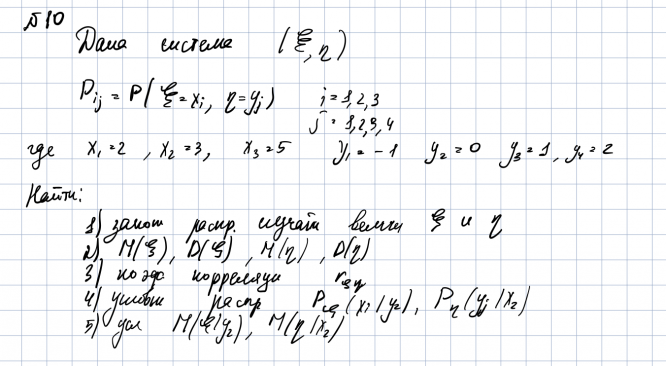 №10
Дана система (ξ, η)
P_ij = P(ξ = x_i, η = y_j) i = 1,2,3
j = 1,2,3,4
где x_1 = 2, x_2 = 3, x_3 = 5 y_1 = -1 y_2 = 0 y_3 = 1, y_4 = 2
Найти:
1) закон распр. случайн велич ξ и η
2) M(ξ), D(ξ), M(η), D(η)
3) коэф корреляци r_ξη
4) условн распр P_ξ(x_i/y_2), P_η(y_j/x_2)
5) усл M(ξ/y_2), M(η/x_2)